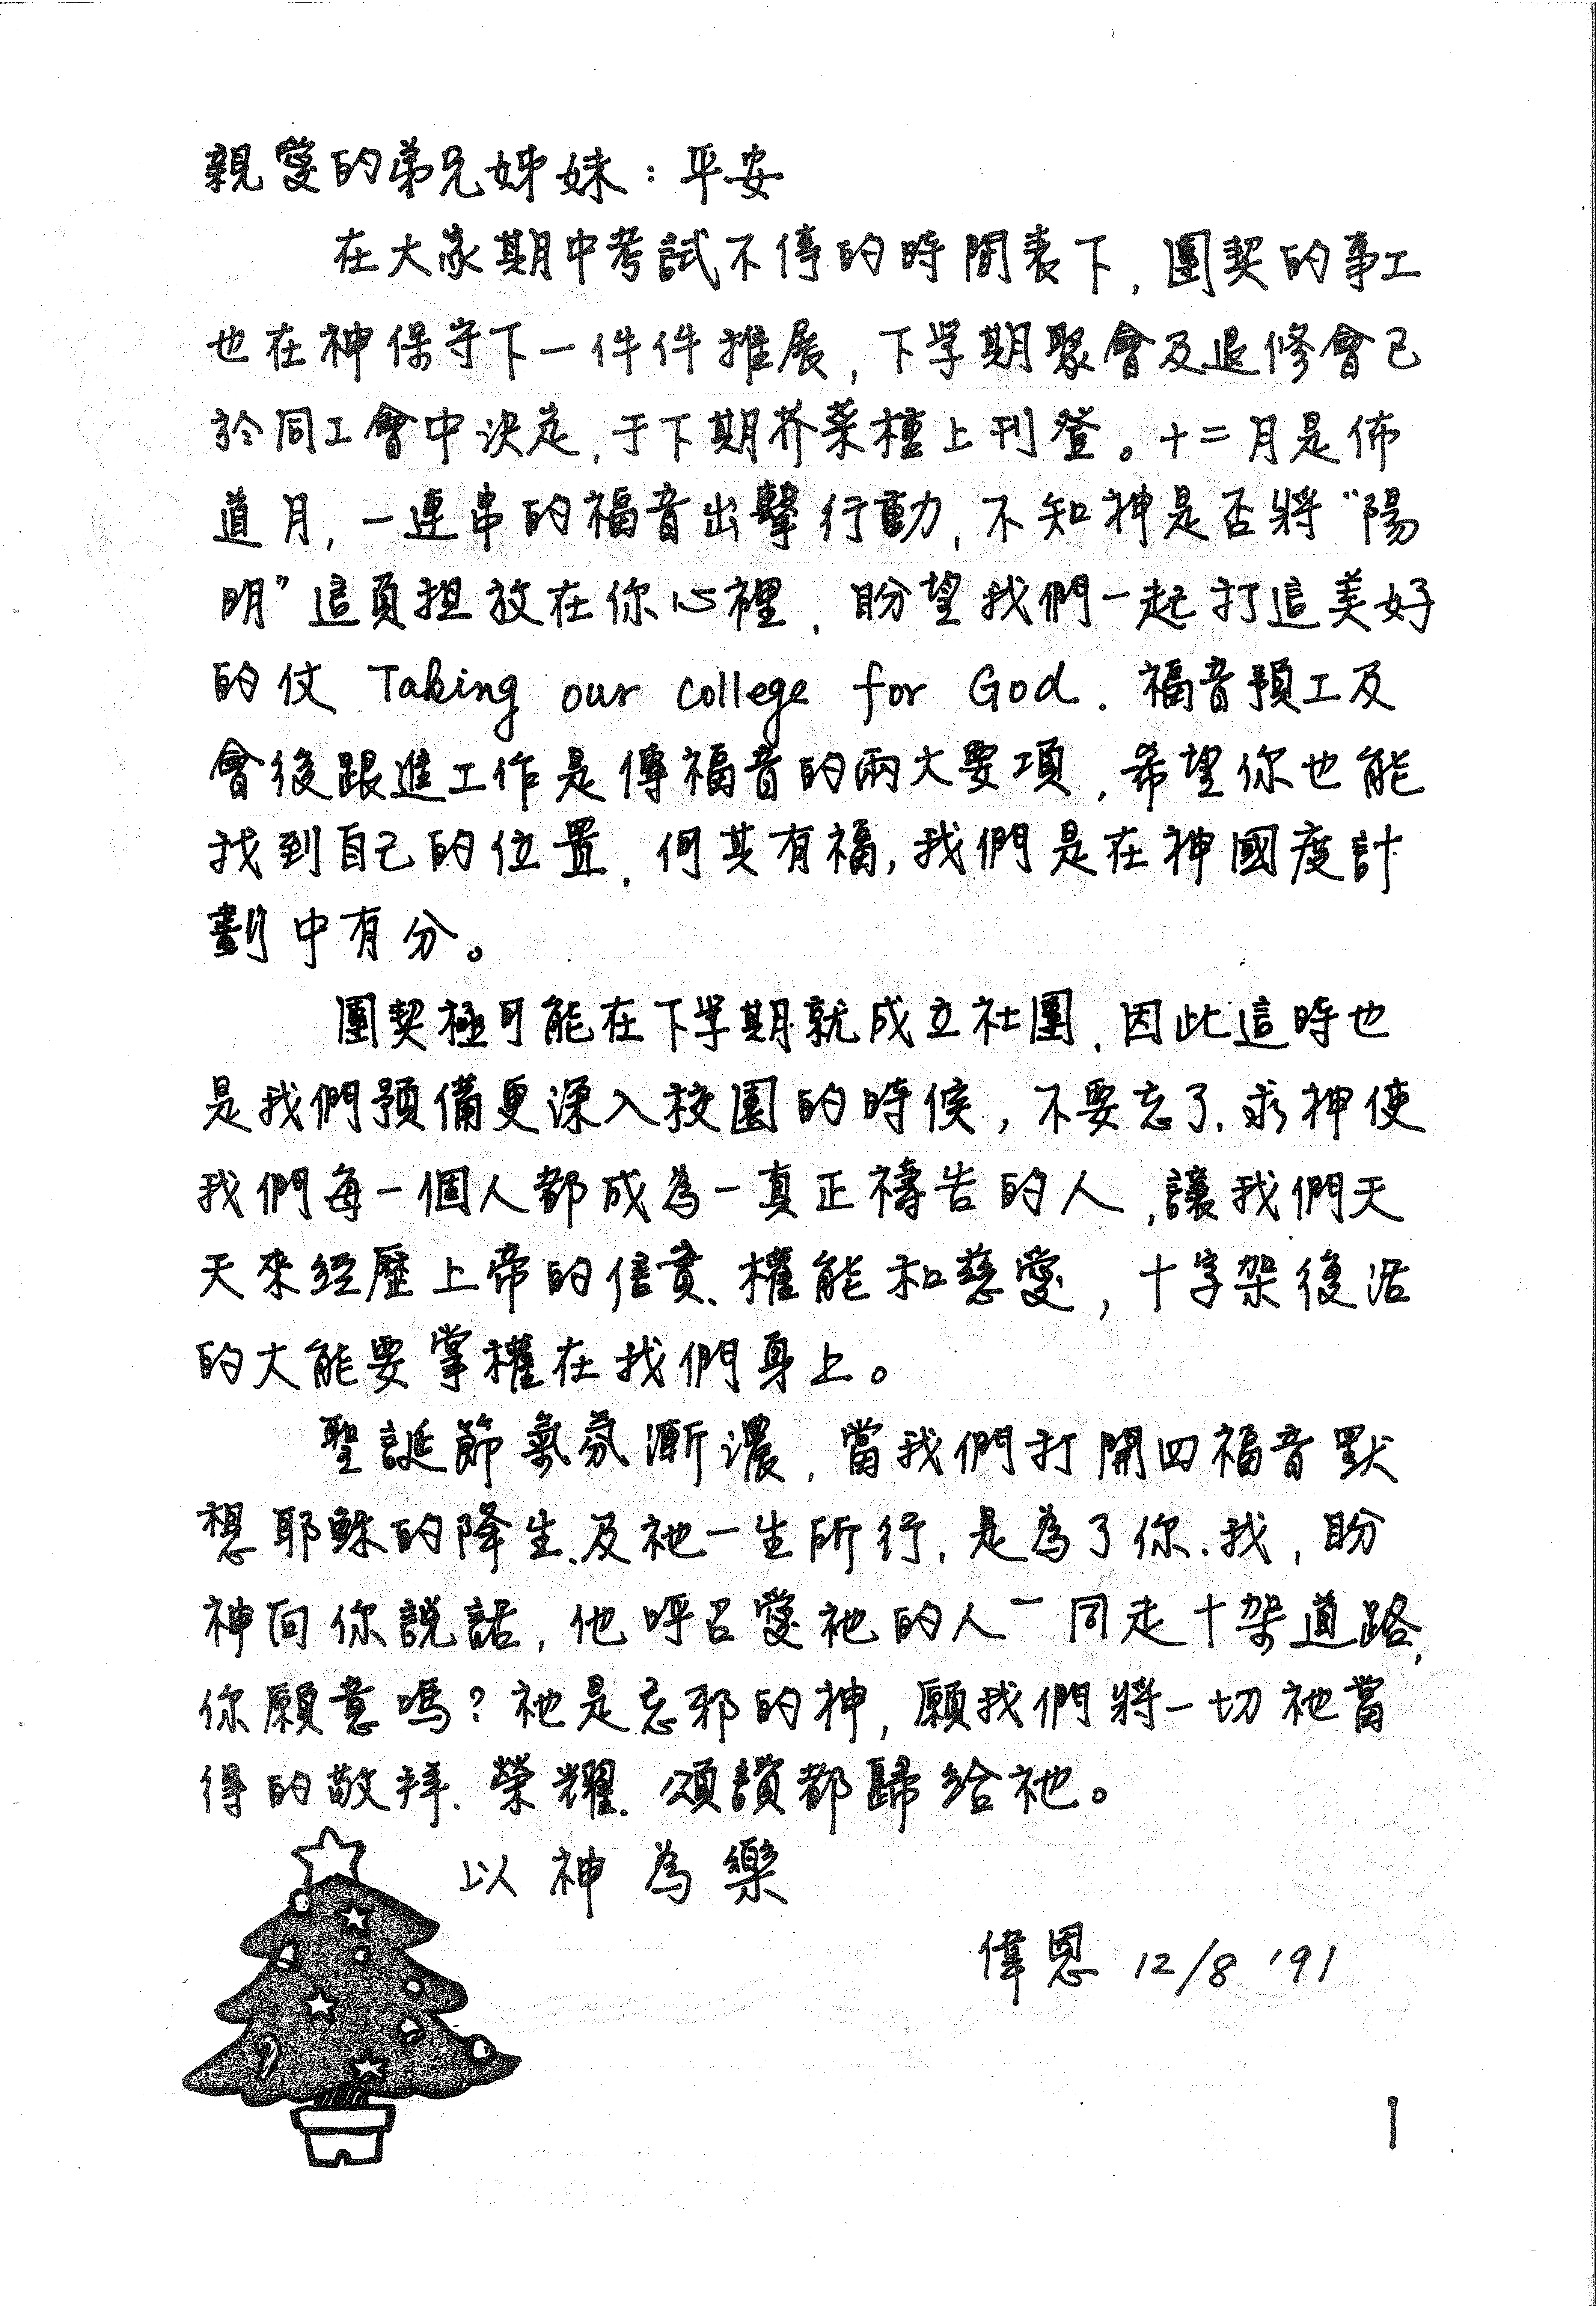 親愛的弟兄姊妹：平安
在大家期中考試不停的時間表下，團契的事工
也在神保守下一件件推展，下学期聚會及退修會已
於同工會中決定，于下期芥菜種上刊登。十二月是佈
道月，一連串的福音出擊行動，不知神是否將“陽
明”這負担放在你心裡，盼望我們一起打這美好
的仗 Taking our college for God．福音預工及
會後跟進工作是傳福音的兩大要項，希望你也能
找到自己的位置，何其有福，我們是在神國度計
劃中有分。
團契極可能在下学期就成立社團，因此這時也
是我們預備更深入校園的時候，不要忘了，求神使
我們每一個人都成為一真正禱告的人，讓我們天
天來經歷上帝的信實、權能和慈愛，十字架復活
的大能要掌權在我們身上。
聖誕節氣氛漸濃，當我們打開四福音默
想耶穌的降生、及祂一生所行，是為了你、我，盼
神向你說話，他呼召愛祂的人一同走十架道路，
你願意嗎？祂是忘邪的神，願我們將一切祂當
得的敬拜、榮耀、頌讚都歸給祂。
以神為樂
偉恩 12/8 '91
1